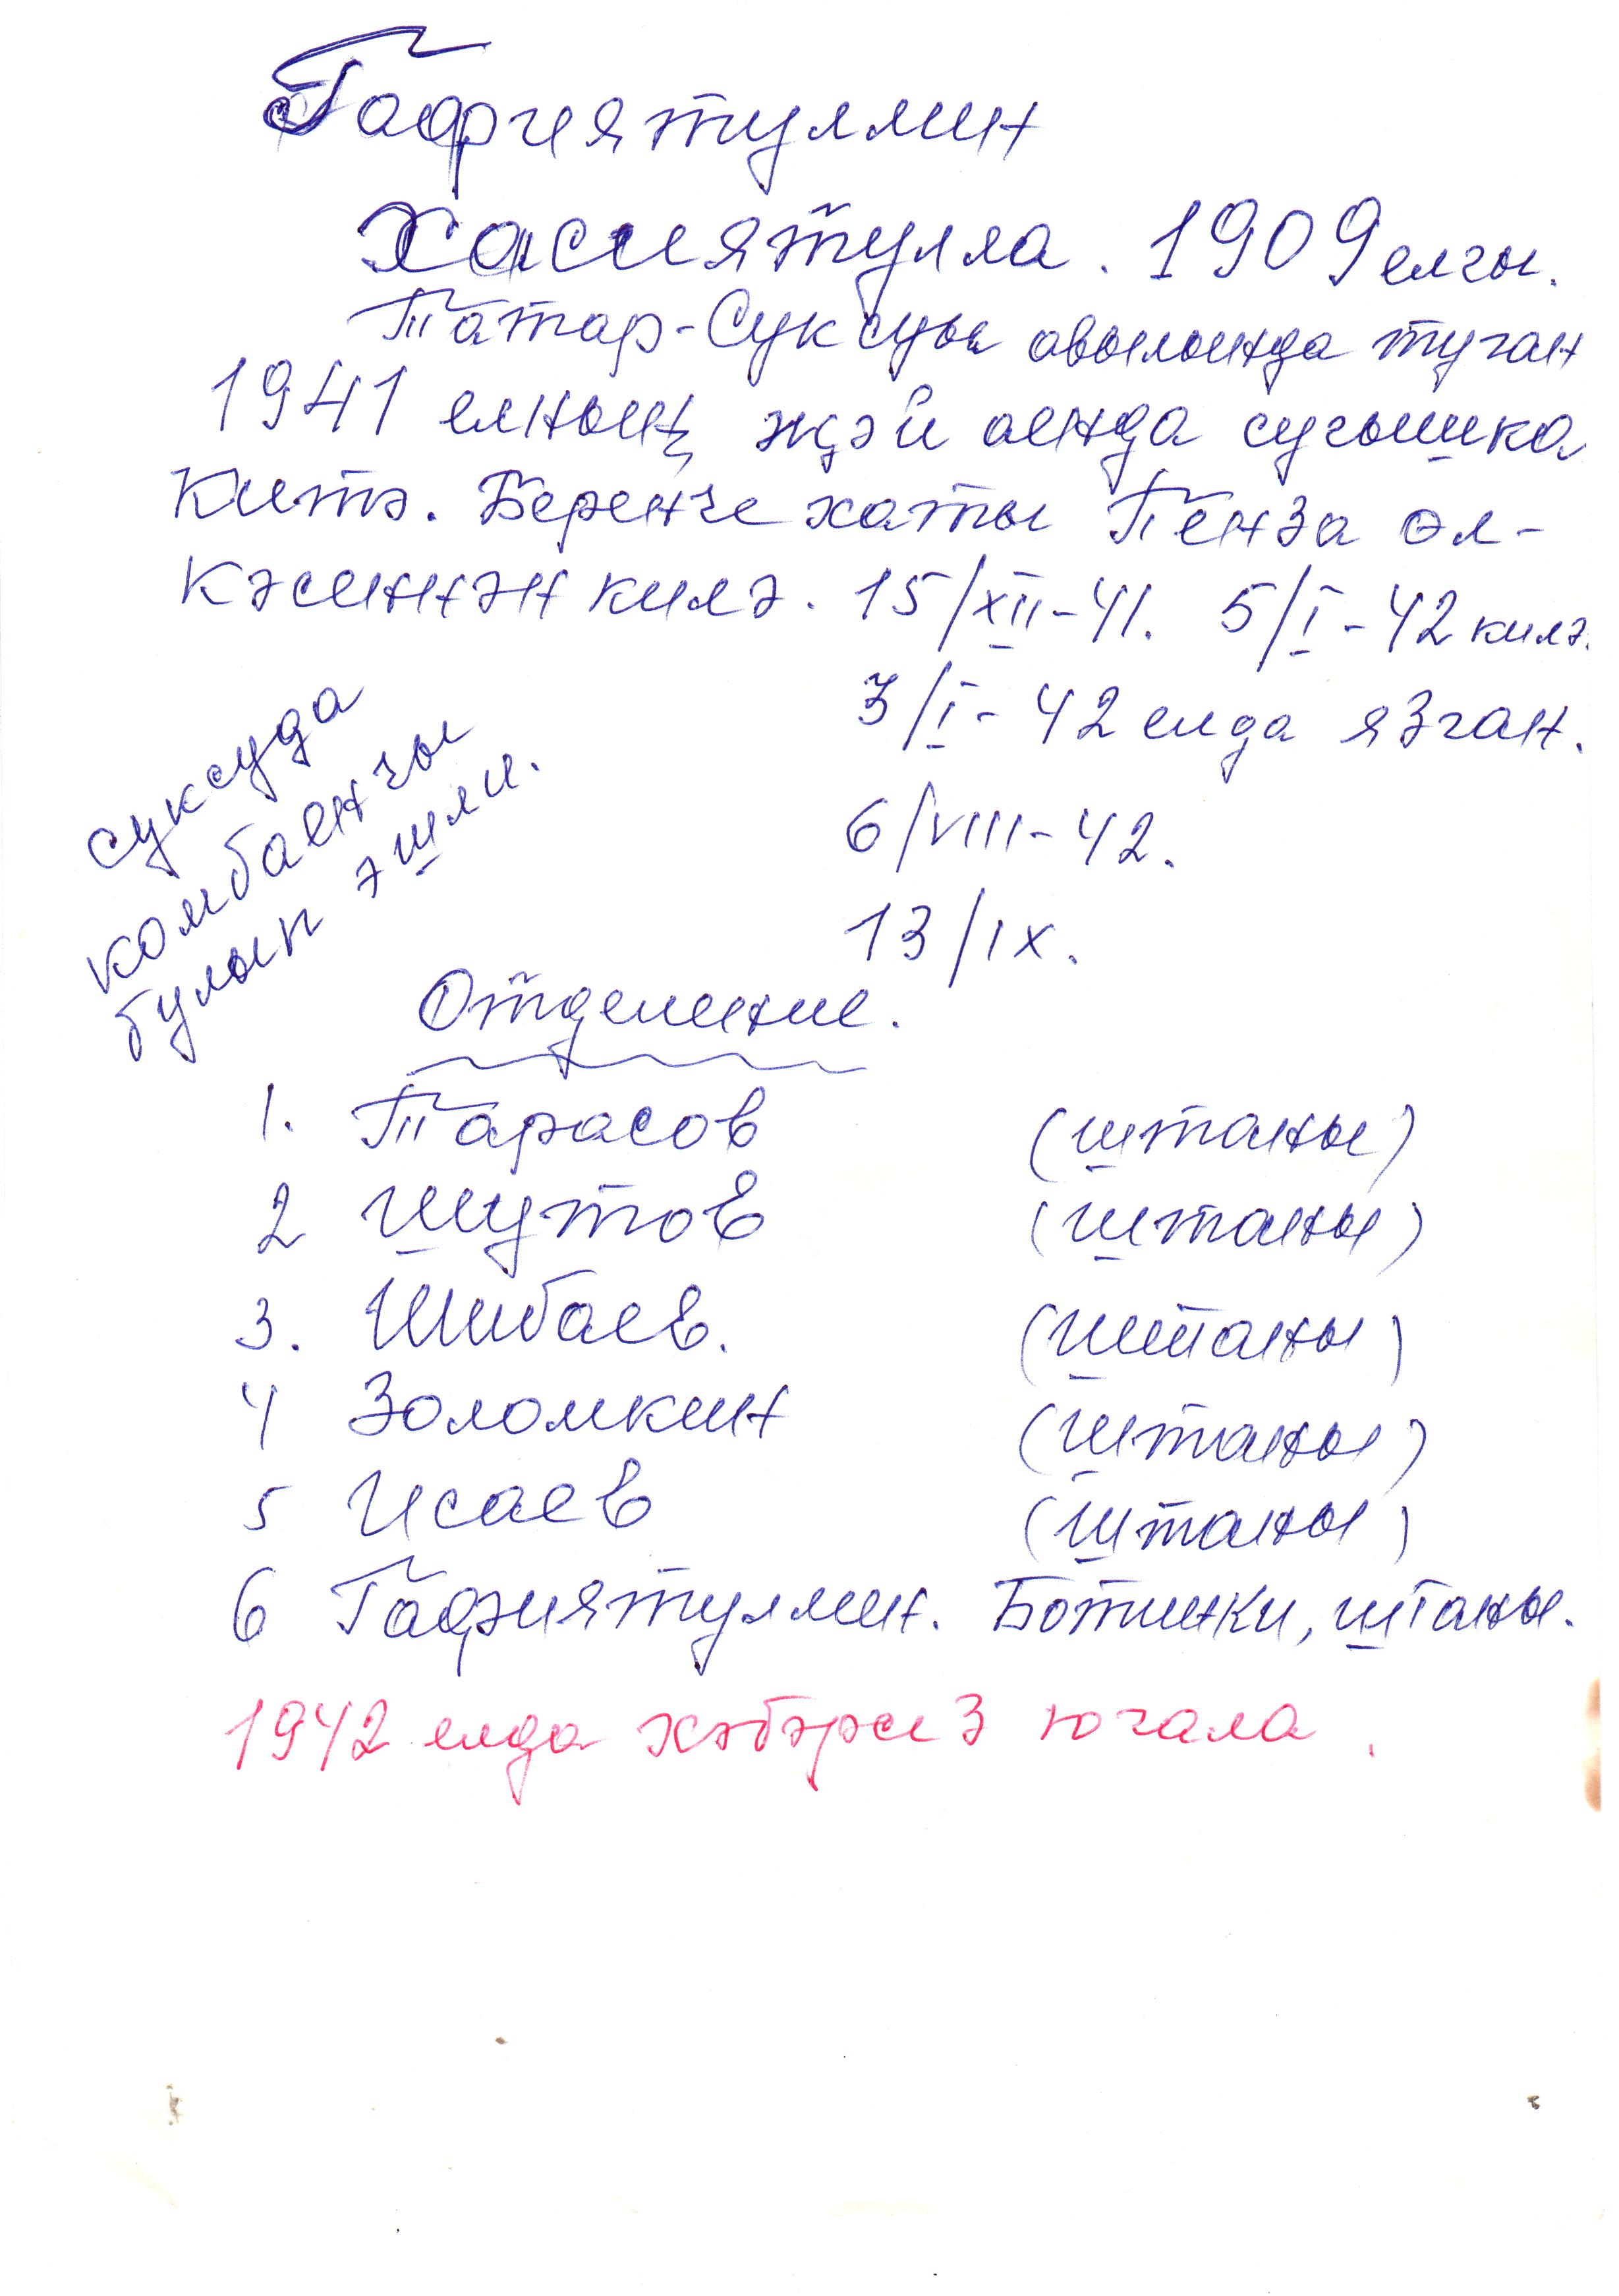 Гафиятуллин
Хасиятулла. 1909 елгы.
Татар-Суксуы авылында туган
1941 елның җәй аенда сугышка
Китә. Беренче хаты Пенза өл-
кәсиннән килә. 15/XII-41. 5/I-42 килә.
3/I-42 елда язган.
6/VIII-42.
13/IX.
суксуда
комбаенчы
булып эшли.
Отделение.
1. Тарасов (штаны)
2 Шутов (штаны)
3. Шибаев. (штаны)
4 Золомкин (штаны)
5 Исаев (штаны)
6 Гафиятуллин. Ботинки, штаны.
1942 елда хәбәрсез югала.